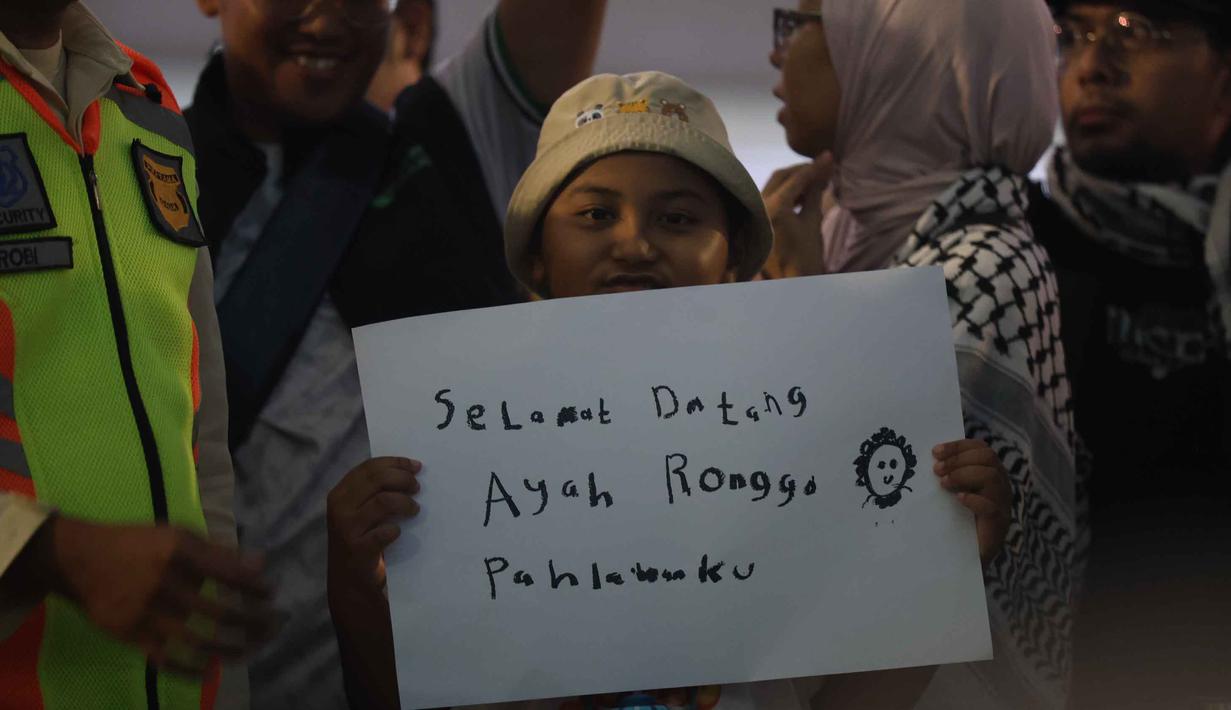 SECURITY
ROBI
Selamat Datang
Ayah Ronggo
Pahlawanku